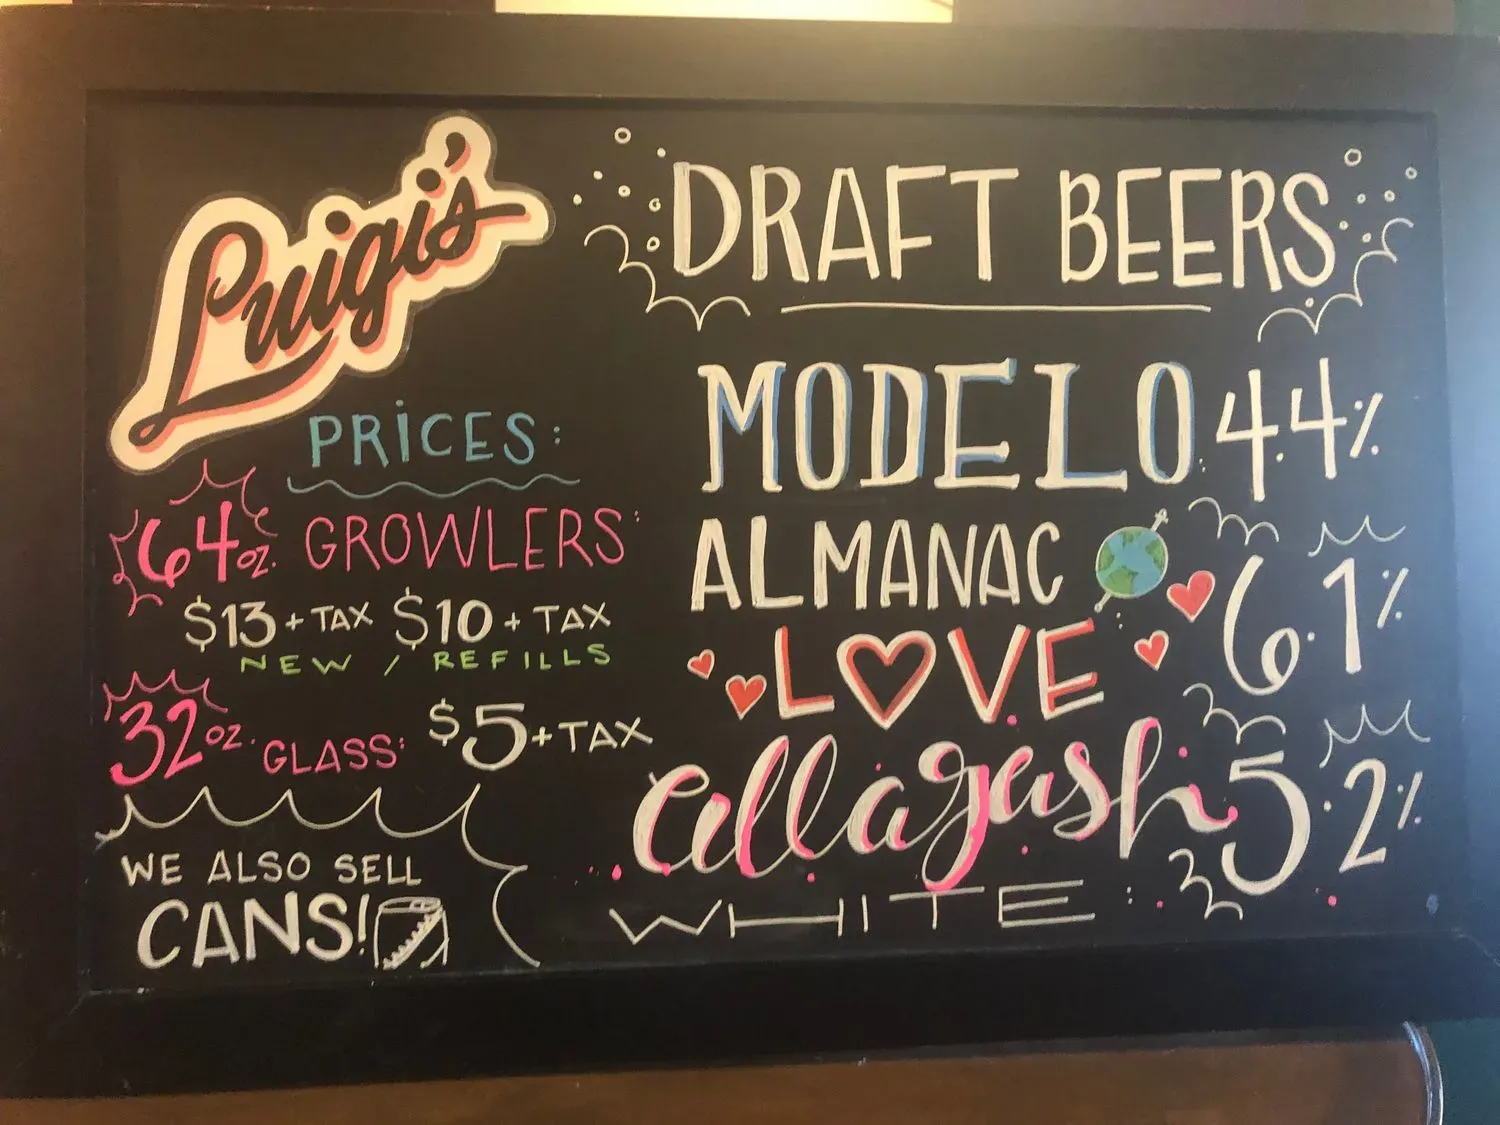 Luigi's
PRICES:
64oz. GROWLERS:
$13 + TAX $10 + TAX
NEW / REFILLS
32oz. GLASS: $5 + TAX
WE ALSO SELL
CANS!
DRAFT BEERS
MODELO: 4.4%
ALMANAC
LOVE: 6.1%
allagash
WHITE: 5.2%